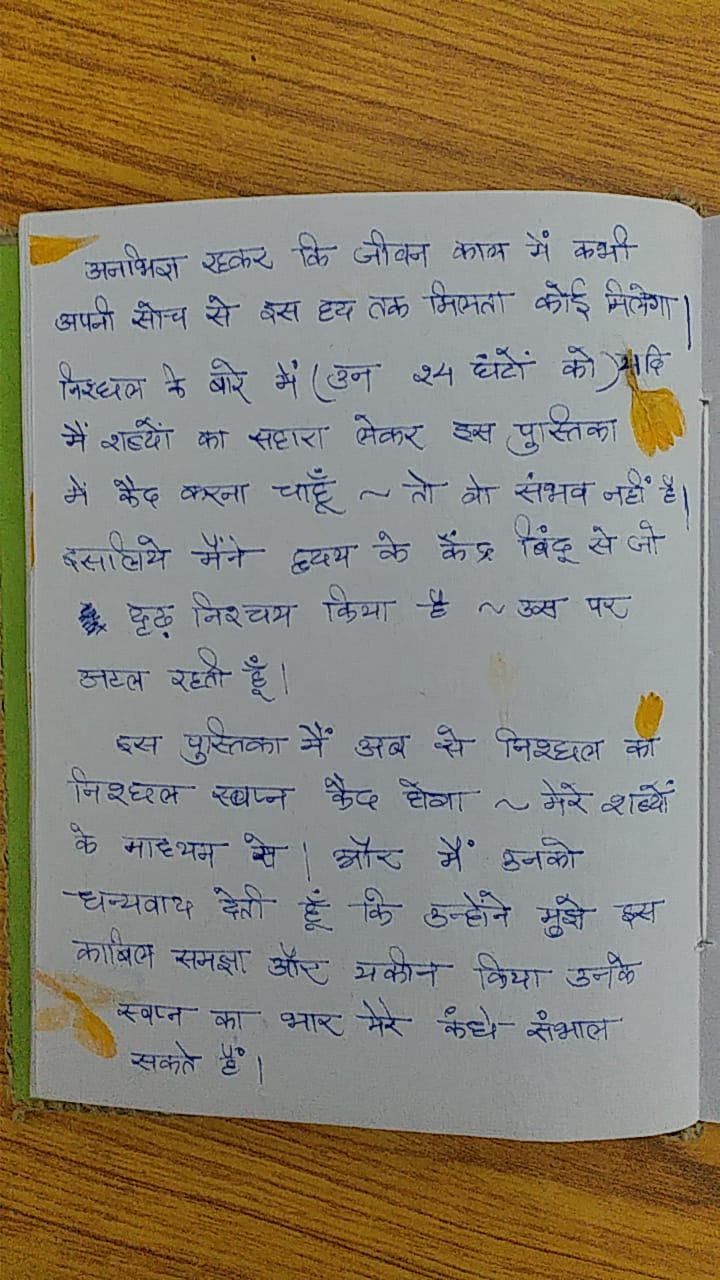 अनभिज्ञ रहकर कि जीवन काल में कभी
अपनी सोच से इस हद तक मिलता कोई मिलेगा।
निश्छल के बारे में (उन २४ घंटों को) यदि
मैं शब्दों का सहारा लेकर इस पुस्तिका
में कैद करना चाहूँ ~ तो वो संभव नहीं है।
इसलिये मैंने हृदय के केंद्र बिंदू से जो
दृढ़ निश्चय किया है ~ उस पर
अटल रहती हूँ।
इस पुस्तिका मैं अब से निश्छल का
निश्छल स्वप्न कैद होगा ~ मेरे शब्दों
के माध्यम से। और मैं उनको
धन्यवाद देती हूँ कि उन्होंने मुझे इस
काबिल समझा और यकीन किया उनके
स्वप्न का भार मेरे कंधे संभाल
सकते हैं।